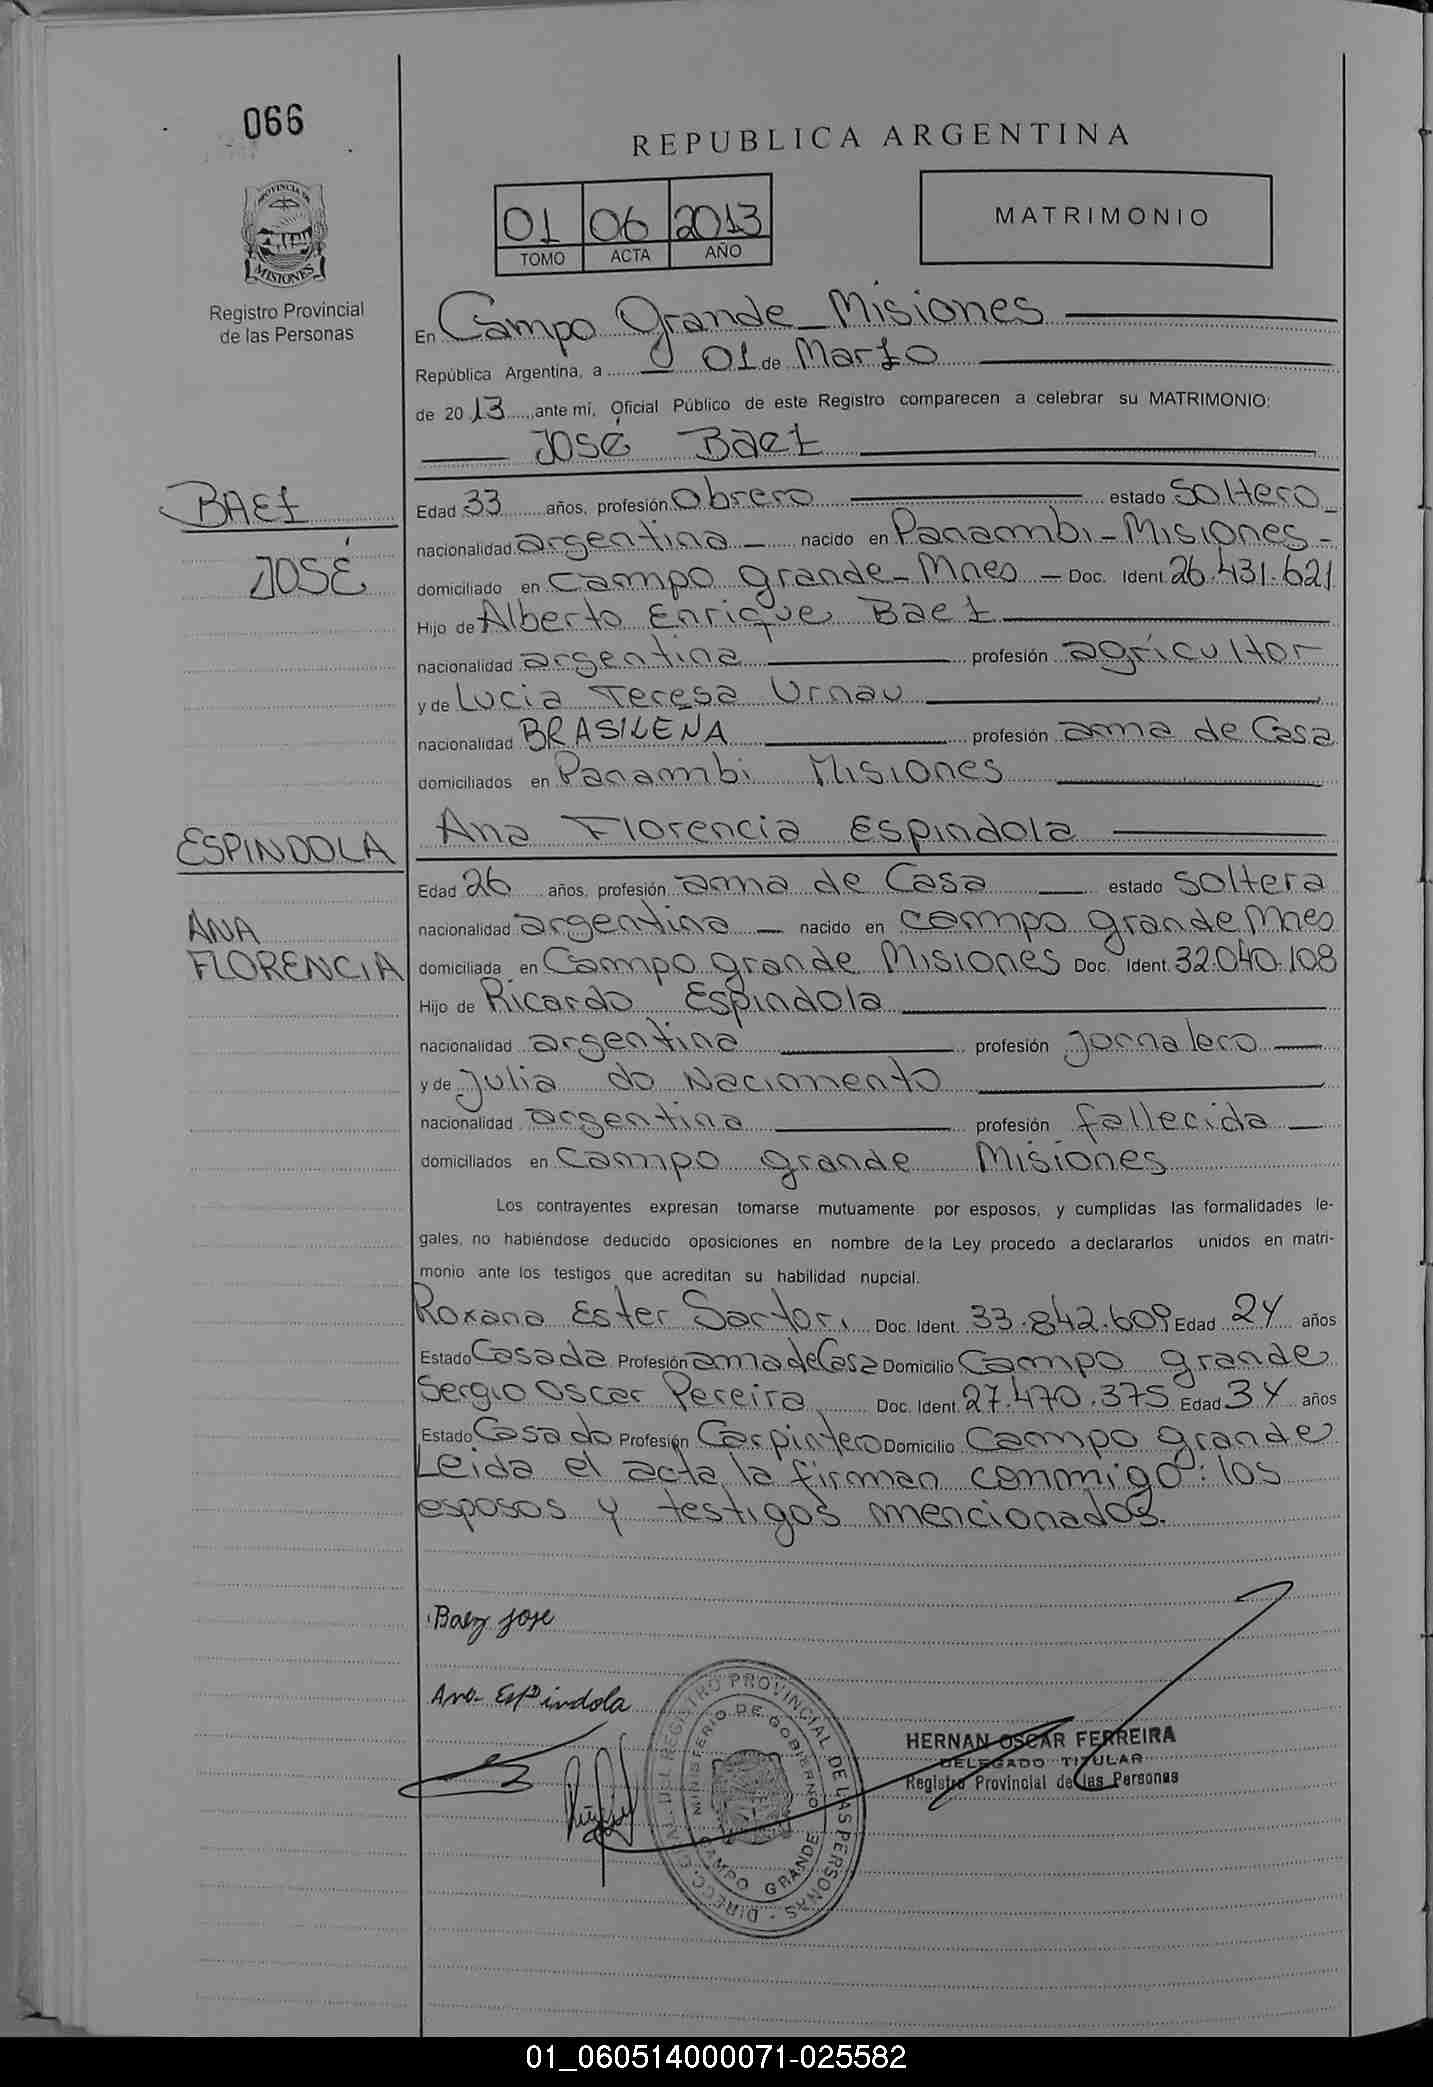 066
REPUBLICA ARGENTINA
PROVINCIA DE
MISIONES
Registro Provincial
de las Personas
01 06 2013
TOMO ACTA AÑO
MATRIMONIO
En Campo Grande - Misiones
República Argentina, a 01 de Marzo
de 20 13 ante mí, Oficial Público de este Registro comparecen a celebrar su MATRIMONIO:
José Baez
BAEZ
JOSÉ
Edad 33 años, profesión Obrero estado Soltero
nacionalidad argentina - nacido en Panambi - Misiones -
domiciliado en Campo grande - Mnes - Doc. Ident. 26.431.621
Hijo de Alberto Enrique Baez
nacionalidad argentina profesión agrícultor
y de Lucia Teresa Urnau
nacionalidad BRASILENA profesión ama de Casa
domiciliados en Panambi Misiones
Ana Florencia Espindola
ESPINDOLA
ANA
FLORENCIA
Edad 26 años, profesión ama de Casa estado Soltera
nacionalidad argentina - nacido en Campo grande Mnes
domiciliada en Campo grande Misiones Doc. Ident. 32.040.108
Hijo de Ricardo Espindola
nacionalidad argentina profesión jornalero
y de Julia do Nacimento
nacionalidad argentina profesión fallecida
domiciliados en Campo grande Misiones
Los contrayentes expresan tomarse mutuamente por esposos, y cumplidas las formalidades le-
gales, no habiéndose deducido oposiciones en nombre de la Ley procedo a declararlos unidos en matri-
monio ante los testigos que acreditan su habilidad nupcial.
Roxana Ester Sartori Doc. Ident. 33.842.609 Edad 24 años
Estado Casada Profesión ama de Casa Domicilio Campo grande
Sergio Oscar Pereira Doc. Ident. 27.470.375 Edad 34 años
Estado Casado Profesión Carpintero Domicilio Campo grande
Leida el acta la firman conmigo: los
esposos y testigos mencionados.
Baez jose
Ana Espindola
DIRECC. GRAL. DEL REGISTRO PROVINCIAL DE LAS PERSONAS -
MINISTERIO DE GOBIERNO
CAMPO GRANDE
HERNAN OSCAR FERREIRA
DELEGADO TITULAR
Registro Provincial de las Personas
01_060514000071-025582